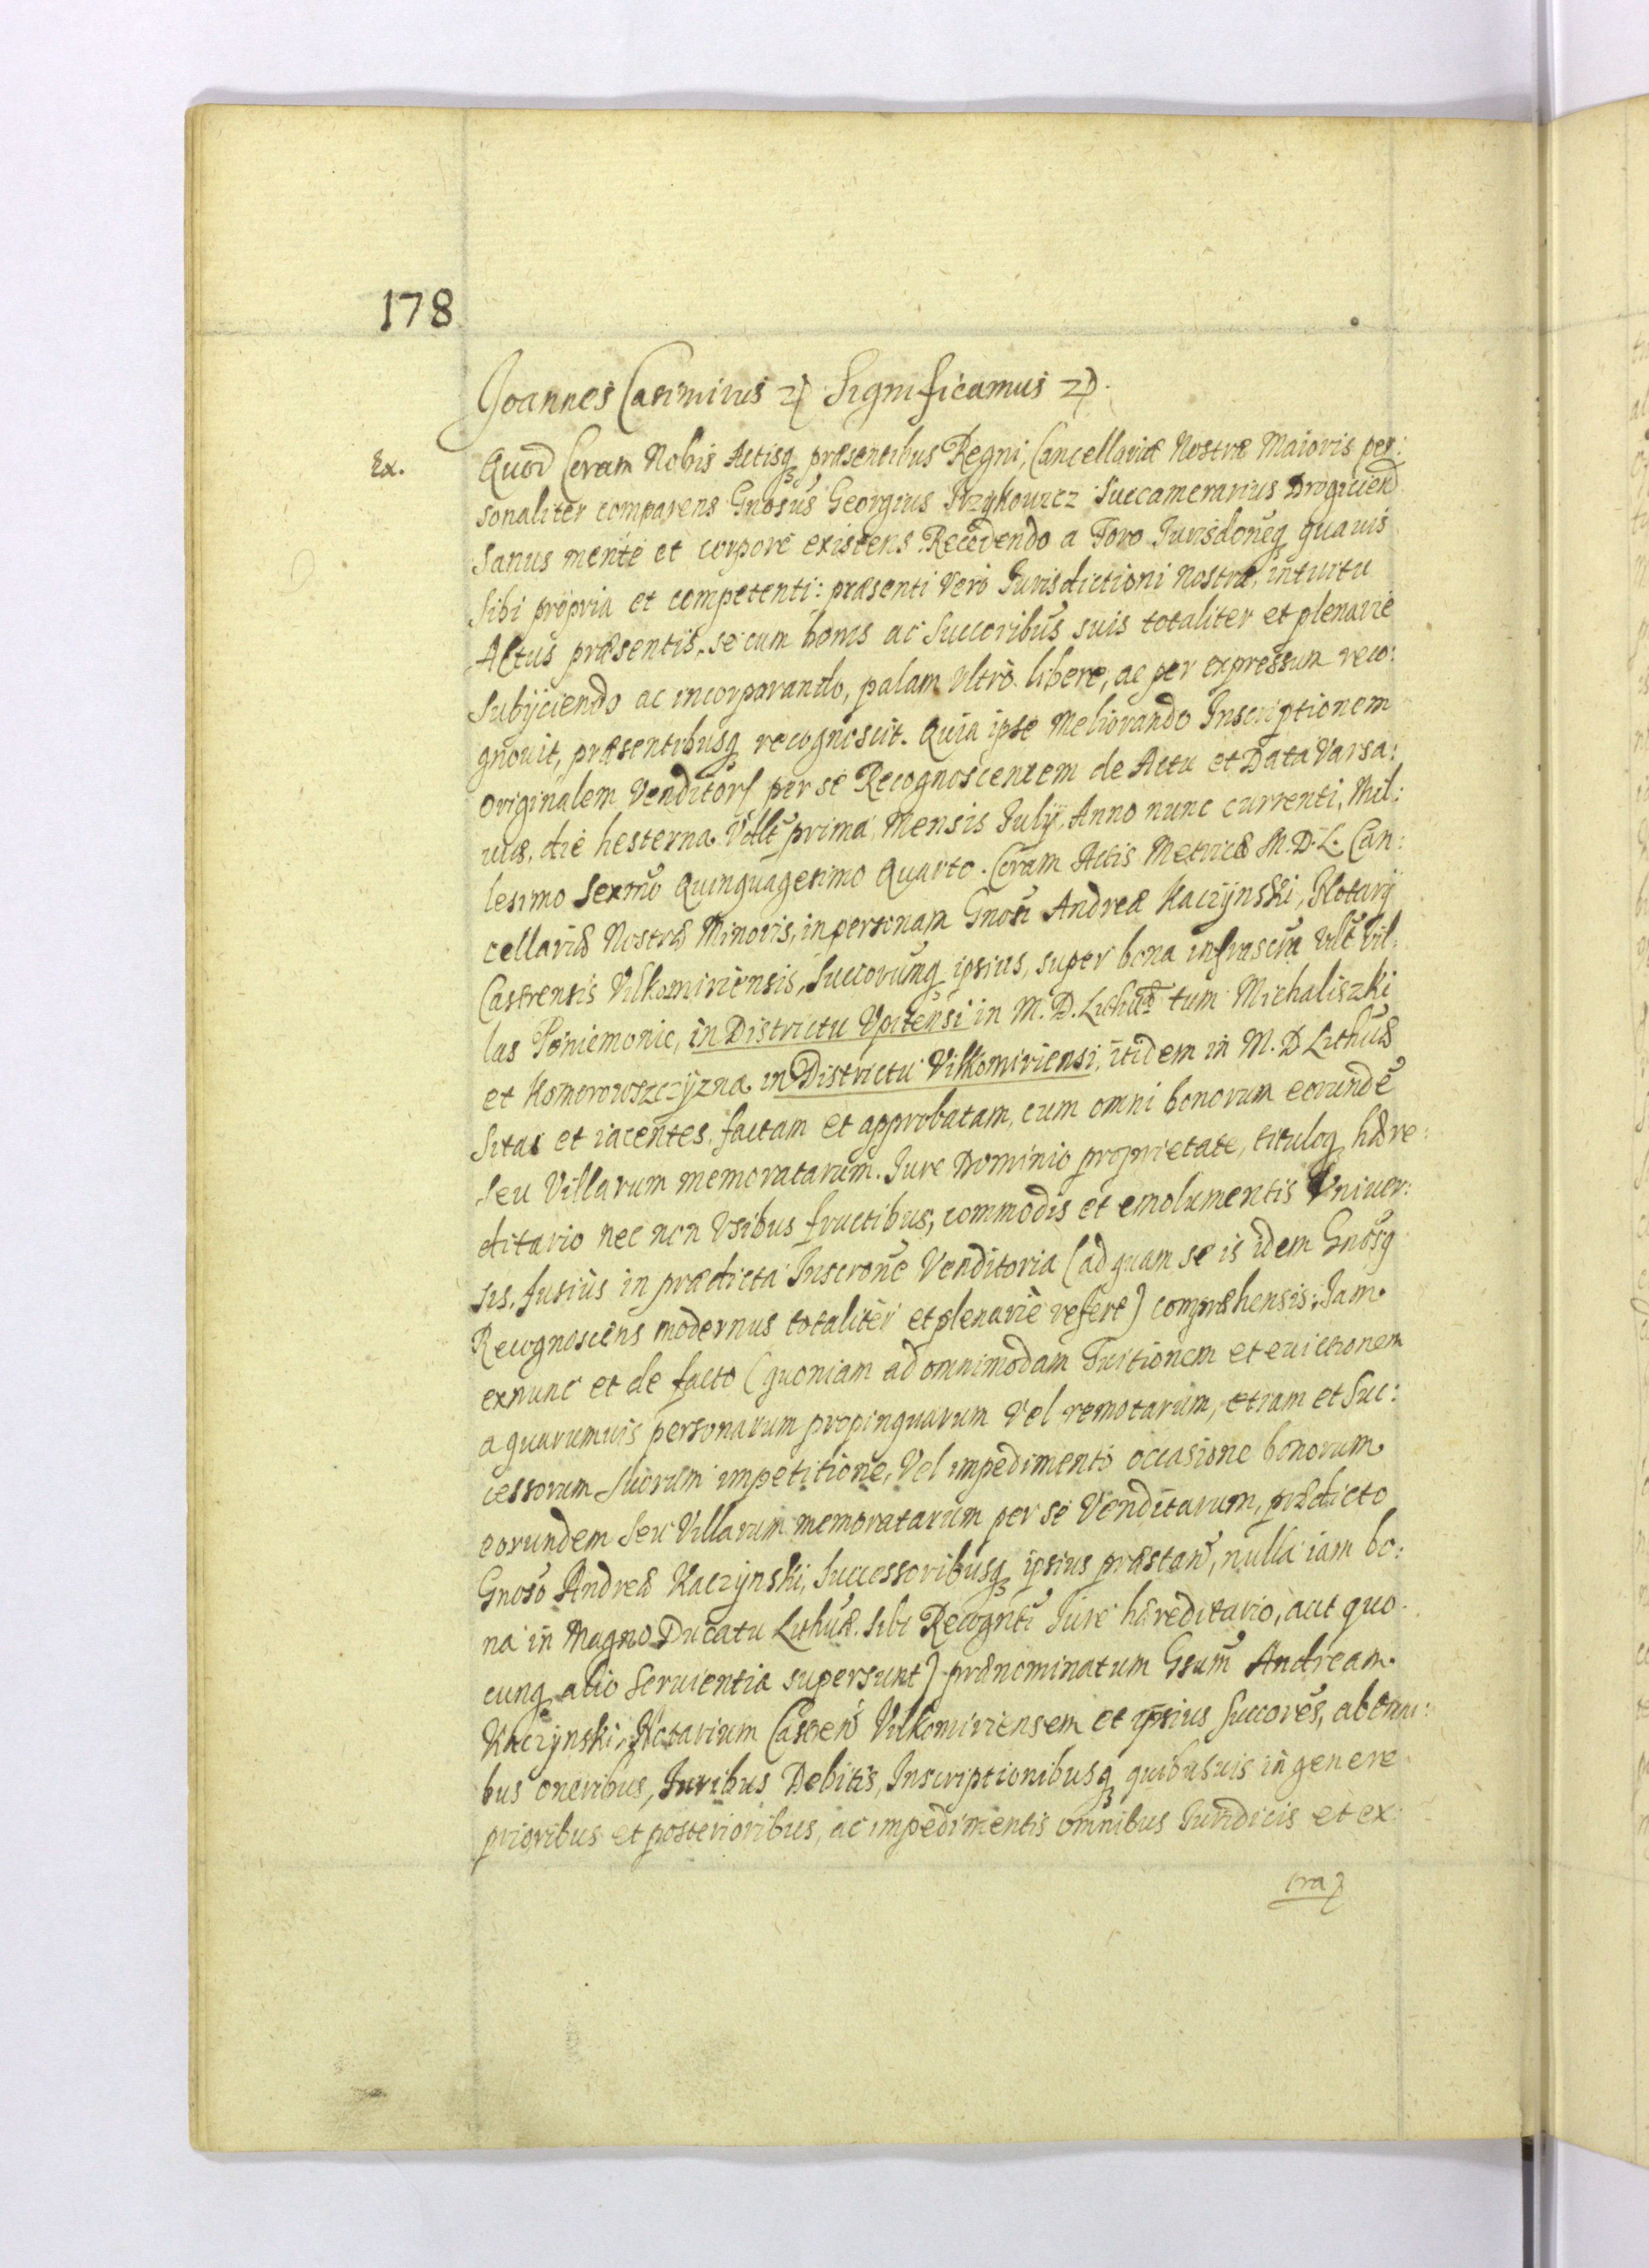 178
Joannes Casimirus etc Significamus etc.
Ex. Quod Coram Nobis Actisq; præsentibus Regni, Cancellariæ Nostræ Maioris per:
sonaliter comparens Gnosus Georgius Przykowicz Succamerarius Drogiciens
Sanus mente et corpore existens. Recedendo a Foro Jurisdoneq; quavis
Sibi propria et competenti: præsenti vero Jurisdictioni Nostræ, intuitu
Actus præsentis, se cum bonis ac Succoribus suis totaliter et plenarie
Subijciendo ac incorporando, palam Ultro libere, ac per expressum reco:
gnovit, præsentibusq; recognoscit. Quia ipse Meliorando Inscriptionem
Originalem Venditors per se Recognoscentem de Actu et Data Varsa:
viæ, die hesterna Vdlt prima Mensis Julij, Anno nunc currenti, Mil:
lesimo Sexmo Quinquagesimo Quarto. Coram Actis Metricæ M. D. L. Can:
cellariæ Nostræ Minoris, in personam Gnosi Andreæ Kaczynski, Notarij
Castrensis Vilkomiriensis, Succorumq; ipsius, super bona infrascra Vdlt Vil:
las Poniemonie, in Districtu Upitensi in M. D. Lithuæ tum Michaliszki
et Komorowszczyzna in Districtu Vilkomiriensi, itidem in M. D Lithuæ
Sitas et iacentes, factam et approbatam, cum omni bonorum eorunde
Seu Villarum memoratarum. Jure Dominio proprietate, tituloq; hære:
ditario nec non Usibus fructibus, commodis et emolumentis Univer:
sis, fusius in prædicta Inscrone Venditoria (ad quam se is idem Gnosq;
Recognoscens modernus totaliter et plenarie refert) comprehensis; Jam
exnunc et de facto (quoniam ad omnimodam Tuitionem et evictionem
a quarumvis personarum propinquarum vel remotarum, etiam et Suc:
cessorum Suorum impetitione, Vel impedimento occasione bonorum
eorundem Seu Villarum memoratarum per se Venditarum, prædicto
Gnoso Andreæ Kaczynski, Successoribusq; ipsius præstan, nulla iam bo:
na in Magno Ducatu Lithuæ. Sibi Recognti Jure hæreditario, aut quo
cunq; alio Servientia supersunt) prænominatum Gsum Andream
Kaczynski, Notarium Castren Vilkomiriensem et ipsius Succores, ab omni:
bus oneribus, Juribus Debitis, Inscriptionibusq; quibusvis in genere
prioribus et posterioribus, ac impedimentis omnibus Juridicis et ex
tra